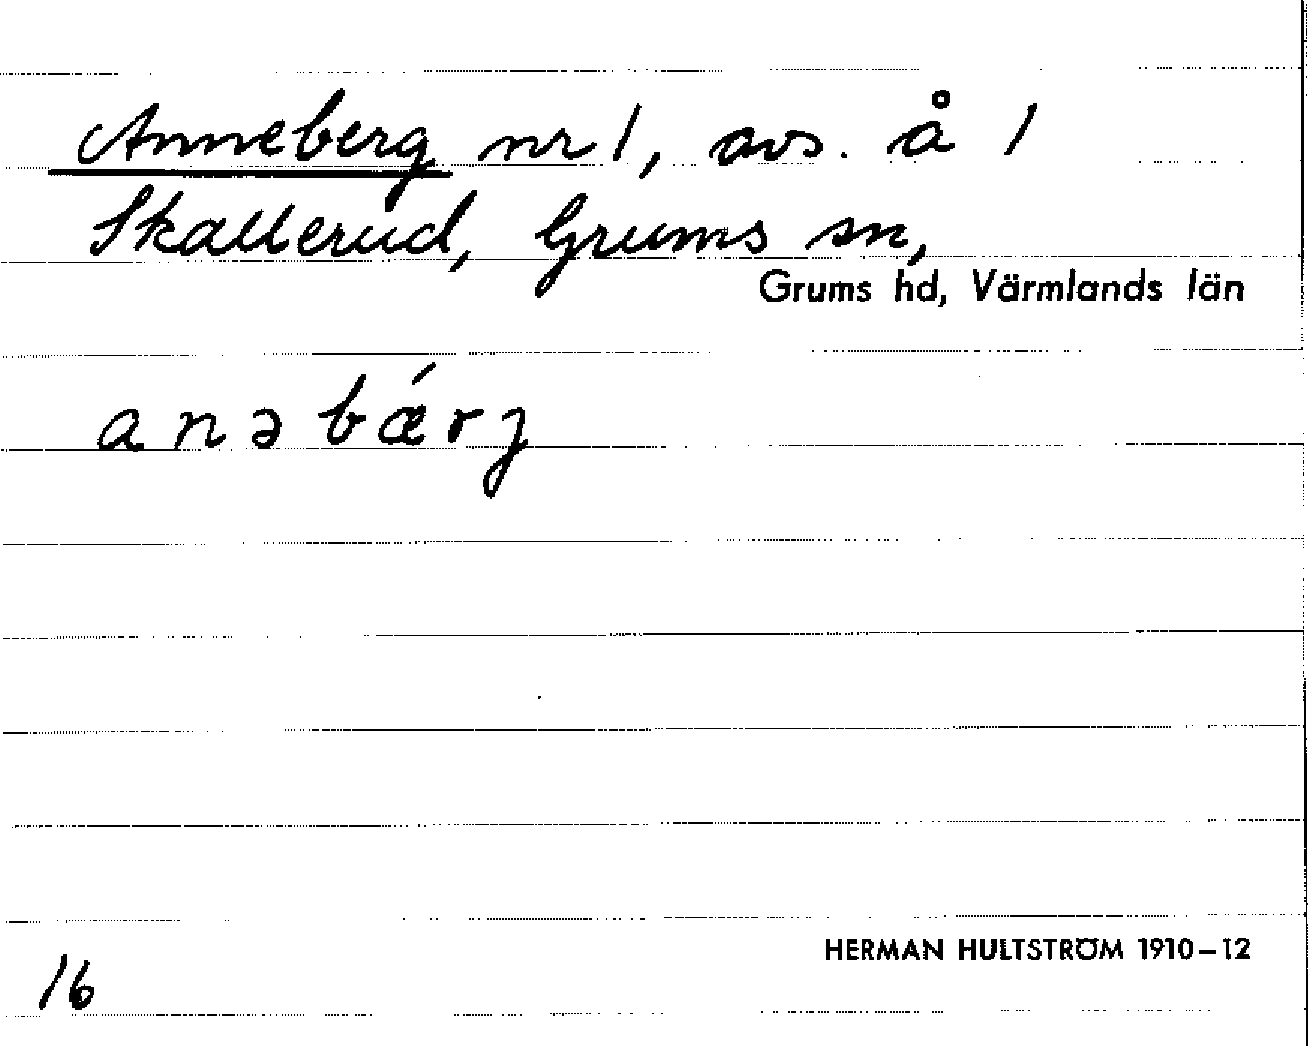 Anneberg nr 1, avs. å 1
Skallerud, Grums sn,
Grums hd, Värmlands län
anəbǽrj
16
HERMAN HULTSTRÖM 1910–12